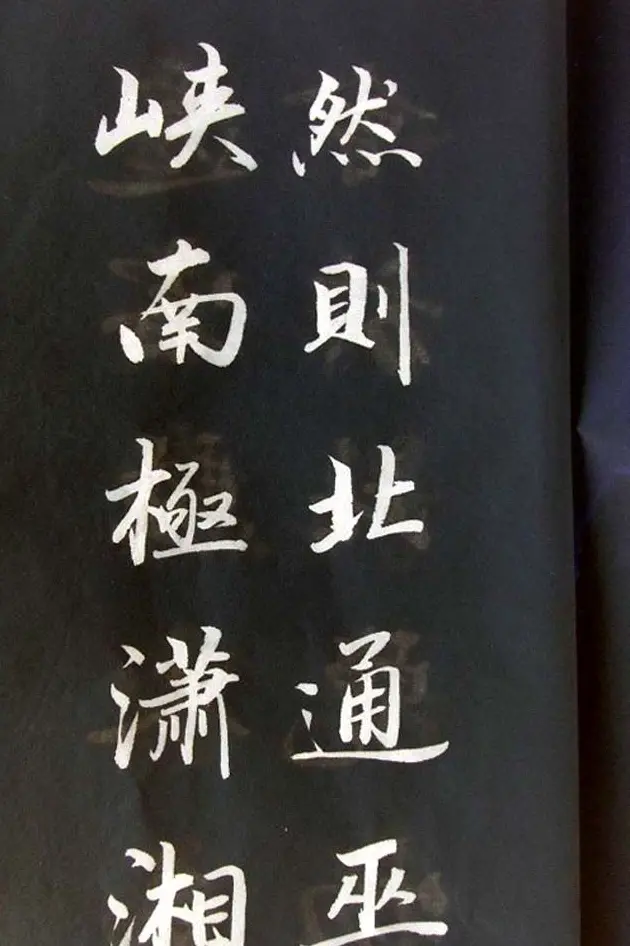 然則北通巫
峽南極瀟湘